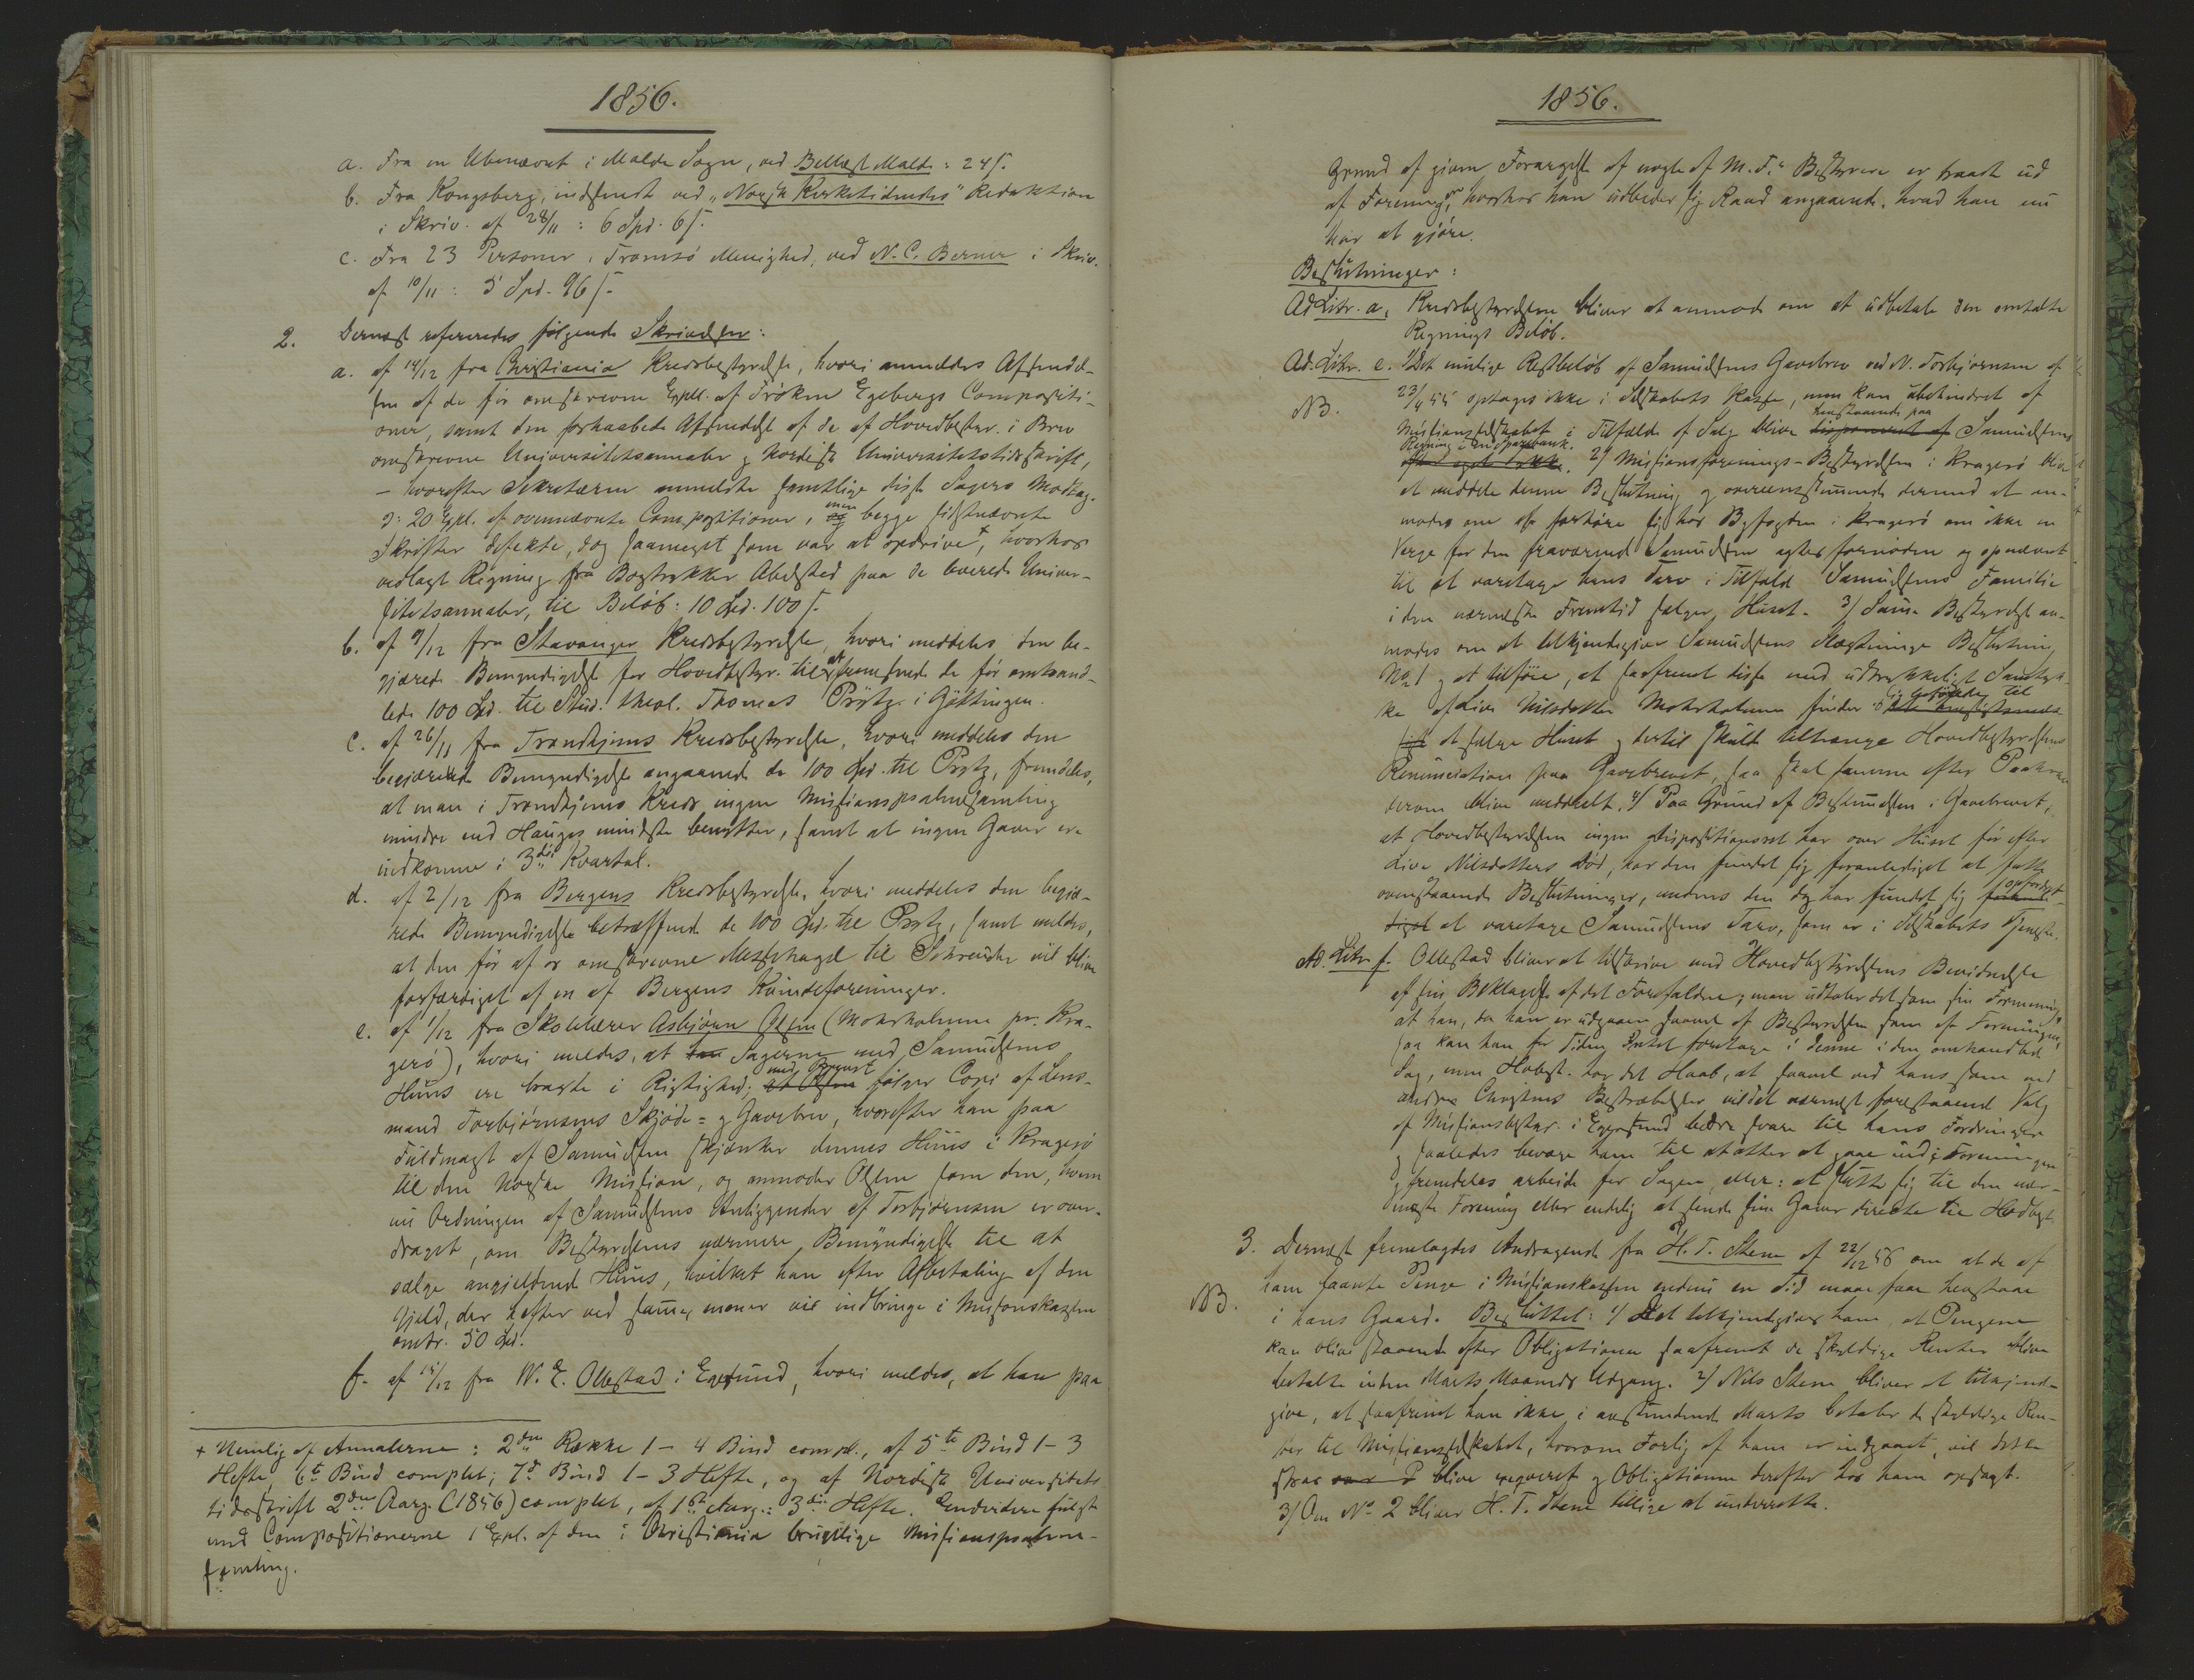 1856.
a. Fra en Ubenævnt i Malde Sogn, ved Bethest Malde: 24 ſ.
b. Fra Kongsberg, indsendt ved "Norsk Kirketidendes" Redaktion
i Skriv. af 28/11: 6 Spd. 6 ſ.
c. Fra 23 Personer i Tromsö Menighed, ved N. C. Berner i Skriv.
af 10/11: 5 Spd. 96 ſ.
2. Dernæst refereredes følgende Skrivelser:
a. af 14/12 fra Christiania Kredsbestyrelse, hvori anmeldes Afsendel-
sen af de før omskrevne Expll. af Frøken Egebergs Compositi-
oner, samt den forhaabede Afsendelse af de af Hovedbestyr. i Brev
omskrevne Universitetsannaler og Nordisk Universitetstidsskrift,
– hvorefter Sekretæren anmeldte samtlige disse Sagers Modtag.
ɔ: 20 Expl. af ovennævnte Compositioner, men begge sidstnævnte
Skrifter defekte, dog saameget som var at opdrive +, hvorhos
vedlagt Regning fra Bogtrykker Abelsted paa de leverede Univer-
sitetsannaler, til Beløb: 10 Spd. 100 ſ.
b. af 9/12 fra Stavanger Kredsbestyrelse, hvori meddeles den be-
gjærede Bemyndigelse for Hovedbestyr. til at fremsende de før omhand-
lede 100 Spd. til Stud. theol. Thomas Prytz i Göttingen.
c. af 26/11 fra Trondhjems Kredsbestyrelse, hvori meddeles den
begjærede Bemyndigelse angaaende de 100 Spd. til Prytz, fremdeles,
at man i Trondhjems Kreds ingen Missionspsalmesamling
mindre end Hauges mindste benytter, samt at ingen Gaver ere
indkomne i 3die Kvartal.
d. af 2/12 fra Bergens Kredsbestyrelse, hvori meddeles den begjæ-
rede Bemyndigelse betræffende de 100 Spd. til Prytz, samt meldes,
at den før af os omskrevne Messehagel til Schreuder vil blive
forfærdiget af en af Bergens Kvindeforeninger.
e. af 1/12 fra Skolelærer Asbjørn Olsen (Mohrholmen pr. Kra-
gerö), hvori meldes, at Sagerne med Samuelsens
Huus ere bragte i Rigtighed; med Brevet følger Copi af Lens-
mand Torbjørnsens Skjöde- og Gavebrev, hvorefter han paa
Fuldmagt af Samuelsen skjænker dennes Huus i Kragerö
til den Norske Mission, og anmoder Olsen som den, hvem
nu Ordningen af Samuelsens Anliggender af Torbjørnsen er over-
draget, om Bestyrelsens nærmere Bemyndigelse til at
sælge angjeldende Huus, hvilket han efter Afbetaling af den
Gjeld, der hefter ved samme, mener vil indbringe i Missionskassen
omtr. 50 Spd.
f. af 15/12 fra W. E. Ollestad i Egersund, hvori meldes, at han paa
+ Nemlig af Annalerne: 2den Række 1–4 Bind compl., af 5te Bind 1–3
Hefte, 6te Bind complet; 7de Bind 1–3 Hefte, og af Nordisk Universitets
tidsskrift 2den Aarg. (1856) complet, af 1ste Aarg.: 3die Hefte. Endvidere fulgte
med Compositionerne 1 Expl. af den i Christiania brugelige Missionspsalme-
samling.
1856.
Grund af given Forargelse af nogle af M. F.s Bestyrere er traadt ud
af Foreningen, hvorhos han udbeder sig Raad angaaende, hvad han nu
har at gjöre.
Beslutninger:
Ad Litr. a, Kredsbestyrelsen bliver at anmode om at udbetale den omtalte
Regnings Beløb.
Ad. Litr. e. 1) Det mulige Restbeløb af Samuelsens Gavebrev ved N. Torbjørnsen af
NB. 23/4 55 optages ikke i Selskabets Kasse, men kan ubehindret af
Missionsselskabet i Tilfælde af Salg blive henstaaende paa Samuelsens
Regning i en Sparebank. 2) Missionsforenings-Bestyrelsen i Kragerö bliver
at meddele denne Beslutning og overeensstemmende dermed at an-
modes om at forhøre sig hos Byfogden i Kragerö om ikke en
Verge for den fraværende Samuelsen agtes fornøden og opnævnt
til at varetage hans Tarv i Tilfælde Samuelsens Familie
i den nærmeste Fremtid sælger Huset. 3) Samme Bestyrelse an-
modes om at tilkjendegive Samuelsens Slægtninge Beslutning
No 1 og at tilføie, at saafremt disse med udtrykkeligt Samtyk-
ke af Live Nilsdatter Mohrholmen finder sig beføiede til
at sælge Huset og dertil skulde tiltrænge Hovedbestyrelsens
Renunciation paa Gavebrevet, saa skal samme efter Paakrav
derom blive meddeelt. 4) Paa Grund af Bestemmelsen i Gavebrevet,
at Hovedbestyrelsen ingen Dispositionsret har over Huset før efter
Live Nilsdatters Död, har den fundet sig foranlediget at fatte
ovenstaaende Beslutninger, medens den dog har fundet sig opfordret
at varetage Samuelsens Tarv, som er i Selskabets Tjeneste.
Ad. Litr f. Ollestad bliver at tilskrive med Hovedbestyrelsens Bevidnelse
af sin Beklagelse af det Forefaldne; man udtaler det som sin Formening,
at han, da han er udgaaen saavel af Bestyrelsen som af Foreningen,
saa kan han for Tiden Intet foretage i denne i den omhandlede
Sag, men Hobest. har det Haab, at saavel ved hans som ved
andre Christnes Bestræbelser vil det nærmest forestaaende Valg
af Missionsbestyr. i Egersund bedre svare til hans Fordringer
og saaledes bevæge ham til at atter at gaae ind i Foreningen
og fremdeles arbeide for Sagen, eller: at slutte sig til den nær-
meste Forening eller endelig at sende sine Gaver directe til Hovedbest.
3. Dernæst fremlagdes Andragende fra H. T. Stene af 22/12 56 om at de af
ham laante Penge i Missionskassen endnu en Tid maae faae henstaae
NB. i hans Gaard. Besluttet: 1) At tilkjendegive ham, at Pengene
kan blive staaende efter Obligationen saafremt de skyldige Renter blive
betalte inden Marts Maaneds Udgang. 2) Nils Stene bliver at tilkjende-
give, at saafremt han ikke i anstundende Marts betaler de skyldige Ren-
ter til Missionsselskabet, hvorom Forlig af ham er indgaaet, vil dette
strax blive exeqveret og Obligationen derefter hos ham opsagt.
3) Om No 2 bliver H. T. Stene tillige at underrette.